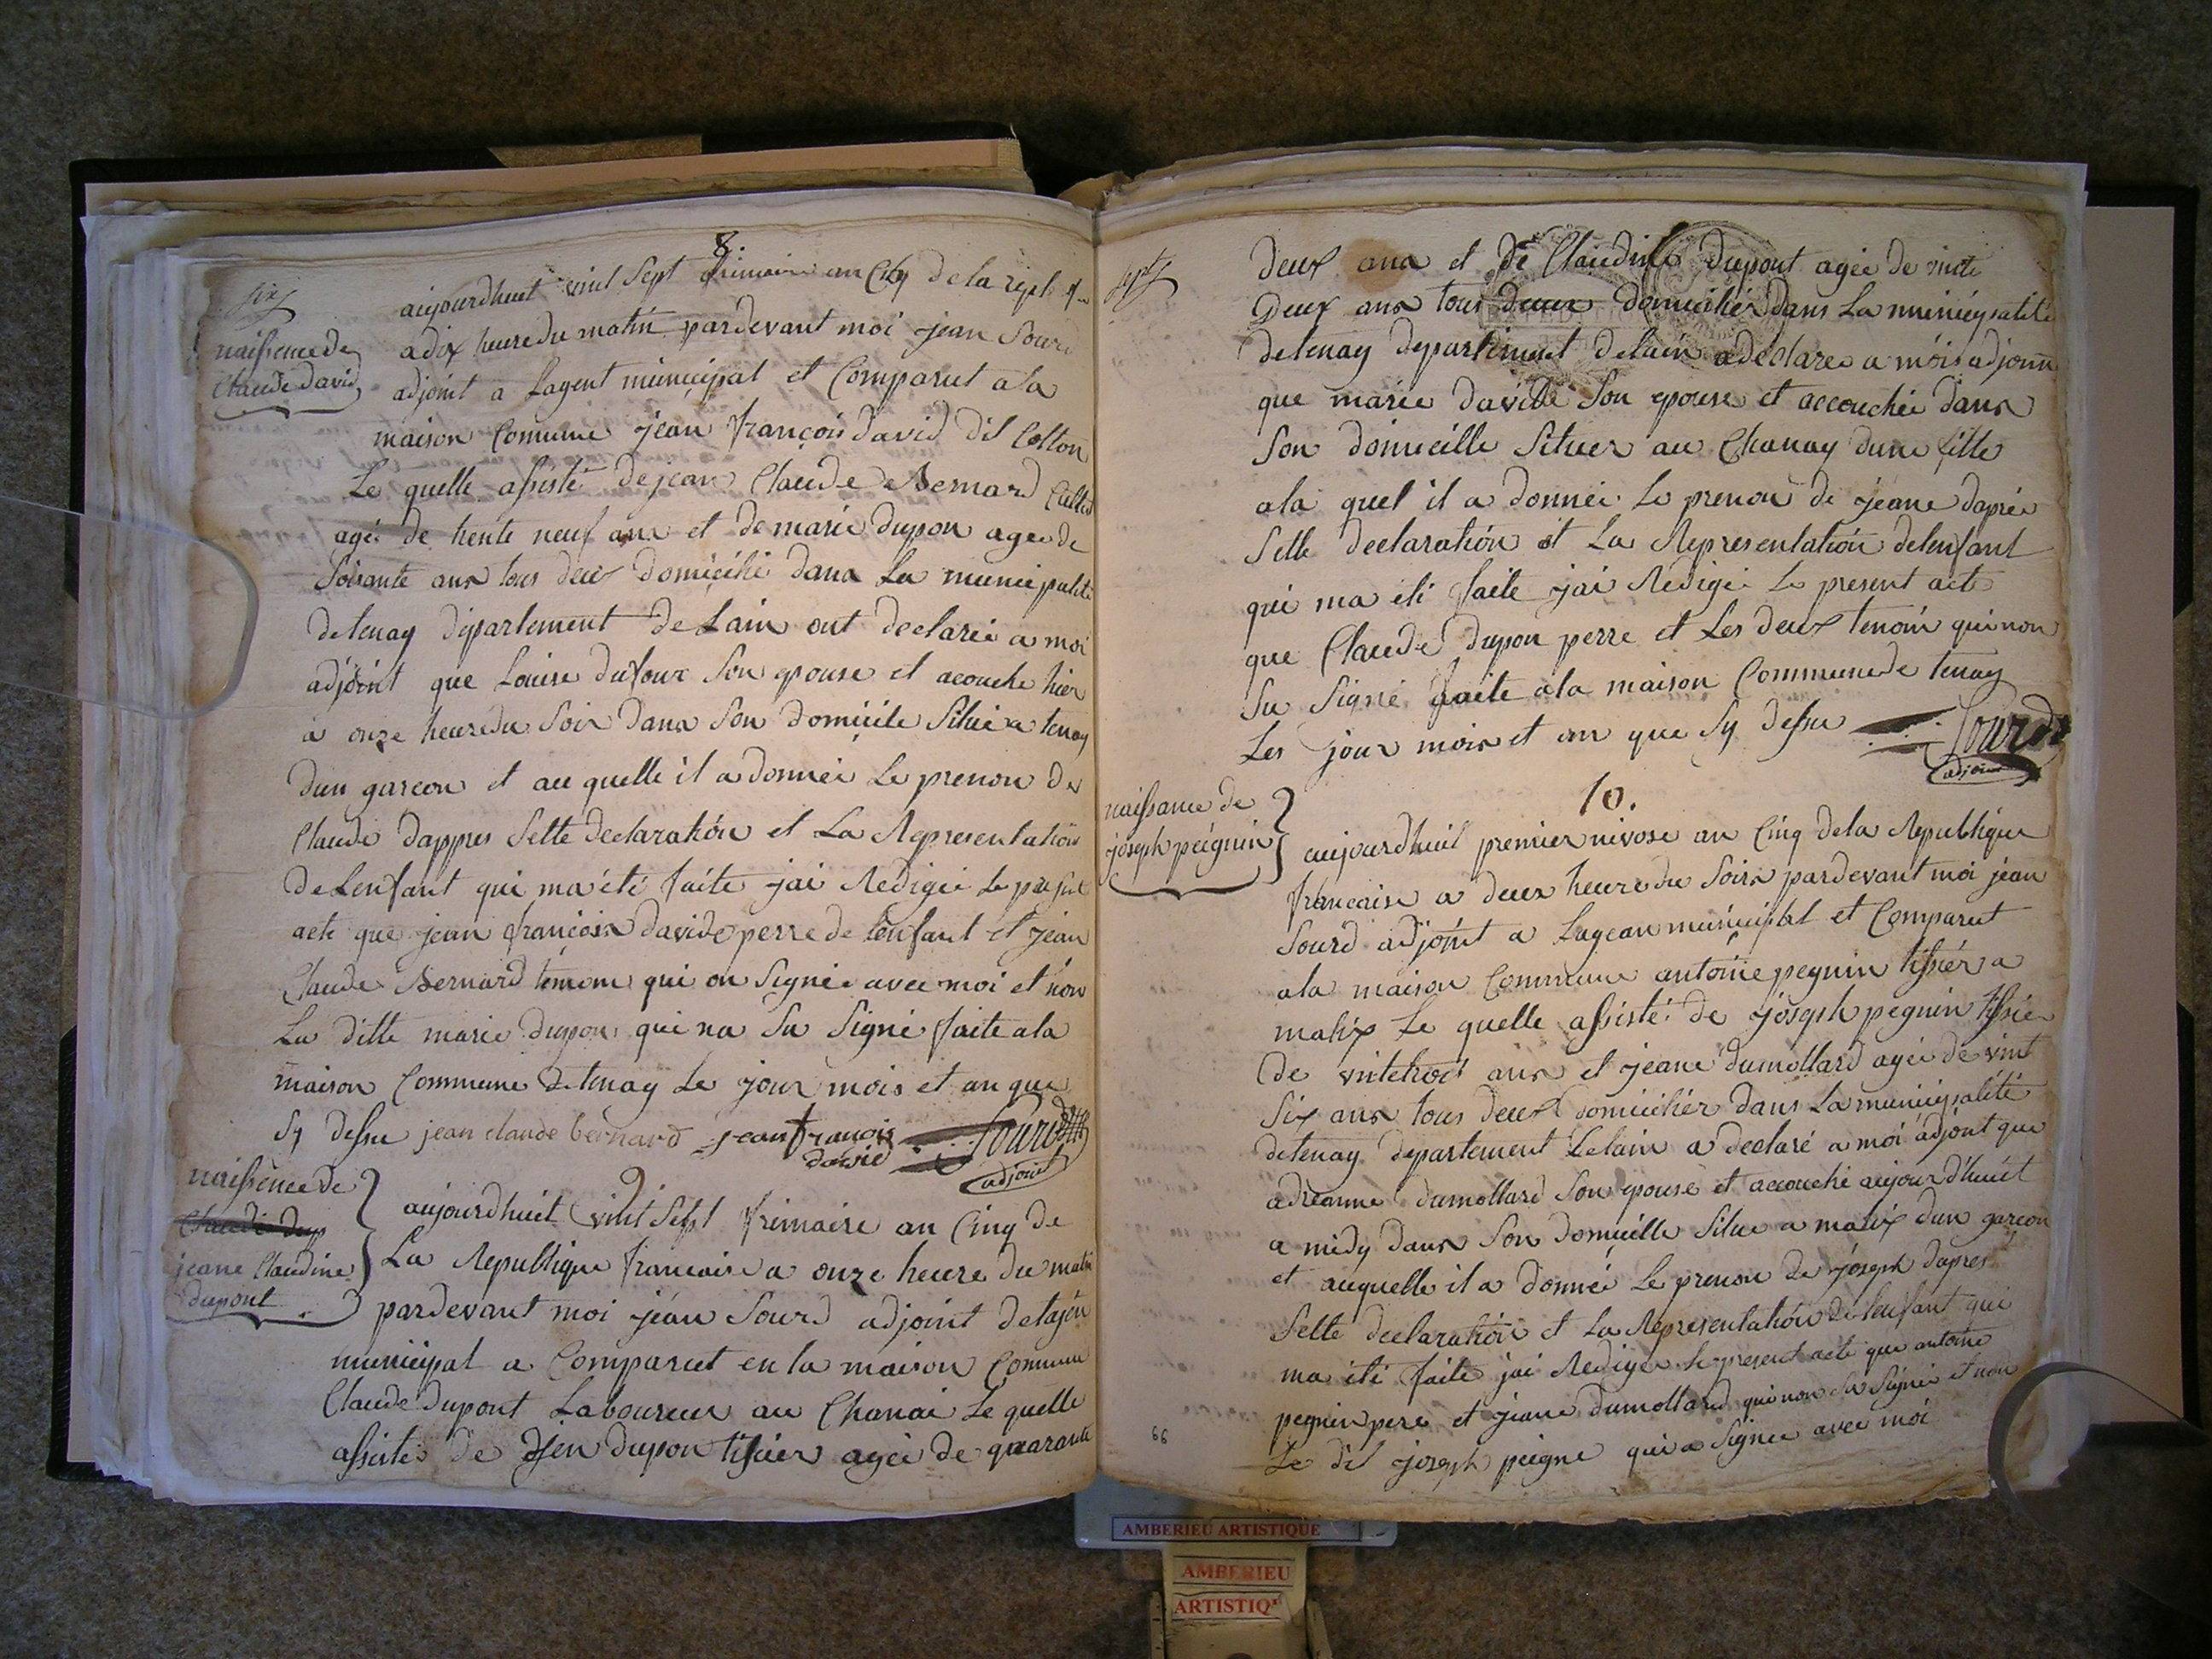 8.
six
naissence de
Claude David
aujourdhuit vint sept frimaire an Cinq de la
a dix heure du matin pardevant moi jean Sourd
adjoint a Lagent municipal et Comparut a la
maison Comune jean françois David dit Colton
Le quelle assisté de jean Claude Bernard Cultiv
agé de trente neuf ans et de marie dupon agee de
Soisante ans tous deux domicilié dans La municipalité
de tenay département de Lain ont declarée a moi
adjoint que Louise dufour Son epouse et acouche hier
a onze heure du Soir dans Son domicile Situé a tenay
dun garcon et au quelle il a donnée Le prenon de
Claude dappres Sette declaration et La Representation
de Lenfant qui ma été faite jai Redigée Le present
acte que jean françois davide perre de lenfant et jean
Claude Bernard temoin qui on Signée avec moi et non
La ditte marie dupon qui na Su Signé faite a la
maison Commune de tenay Le jour mois et an que
Sy dessu jean claude bernard jean francois
david
Sourd
adjoint
9
naissence de
Claudé dup
jeane Claudine
dupont
aujourdhuit vint Sept frimaire an Cinq de
La Republique francaise a onze heure du matin
pardevant moi jean Sourd adjoint de lajen
municipal a Comparut en la maison Commune
Claude Dupont Laboureur au Chanai Le quelle
assistée de dupon tissier agée de quarante
sept
deux ans et de Claudine Dupont agée de vinte
Deux ans tous deux domicilier dans La municipalité
de tenay departement de lain a déclarée a mois adjoint
que marie david Son epouse et accouchée dans
Son domicille Situer au Chanay dune fille
a la quel il a donnée Le prenon de jeane daprée
Sette declaration et La Representation de lenfant
qui ma été faite jai Redigée Le present acte
que Claude Dupon perre et Les deux temoin qui non
Su Signé faite a la maison Commune de tenay
Les jour mois et an que Sy dessu
Sourd
adjoint
10.
naissance de
joseph peignin
aujourdhuit premier nivose an Cinq de la Republique
francaise a deux heure du Soir pardevant moi jean
Sourd adjoint a Lagean municipal et Comparut
a la maison Commune antoine pegnin tissier a
matix Le quelle assisté de joseph pegnin tissier
de vintetrois ans et jeane dumollard agée de vint
Six ans tous deux domicilier dans La municipalité
de tenay departement de lain a declaré a moi adjoint que
adreanne dumollard Son epouse et accouché aujourdhuit
a midy dans Son domicille Situe a matix dun garcon
et auquelle il a donnée Le prenon de joseph dapres
Sette declaration et La Representation de lenfant qui
ma été faite jai Redigée Le present acte que antoine
pegnin pere et jeane dumollard qui non Su Signée et non
Le dit joseph peigne qui a Signee avec moi
66
AMBERIEU ARTISTIQUE
AMBERIEU
ARTISTIQ